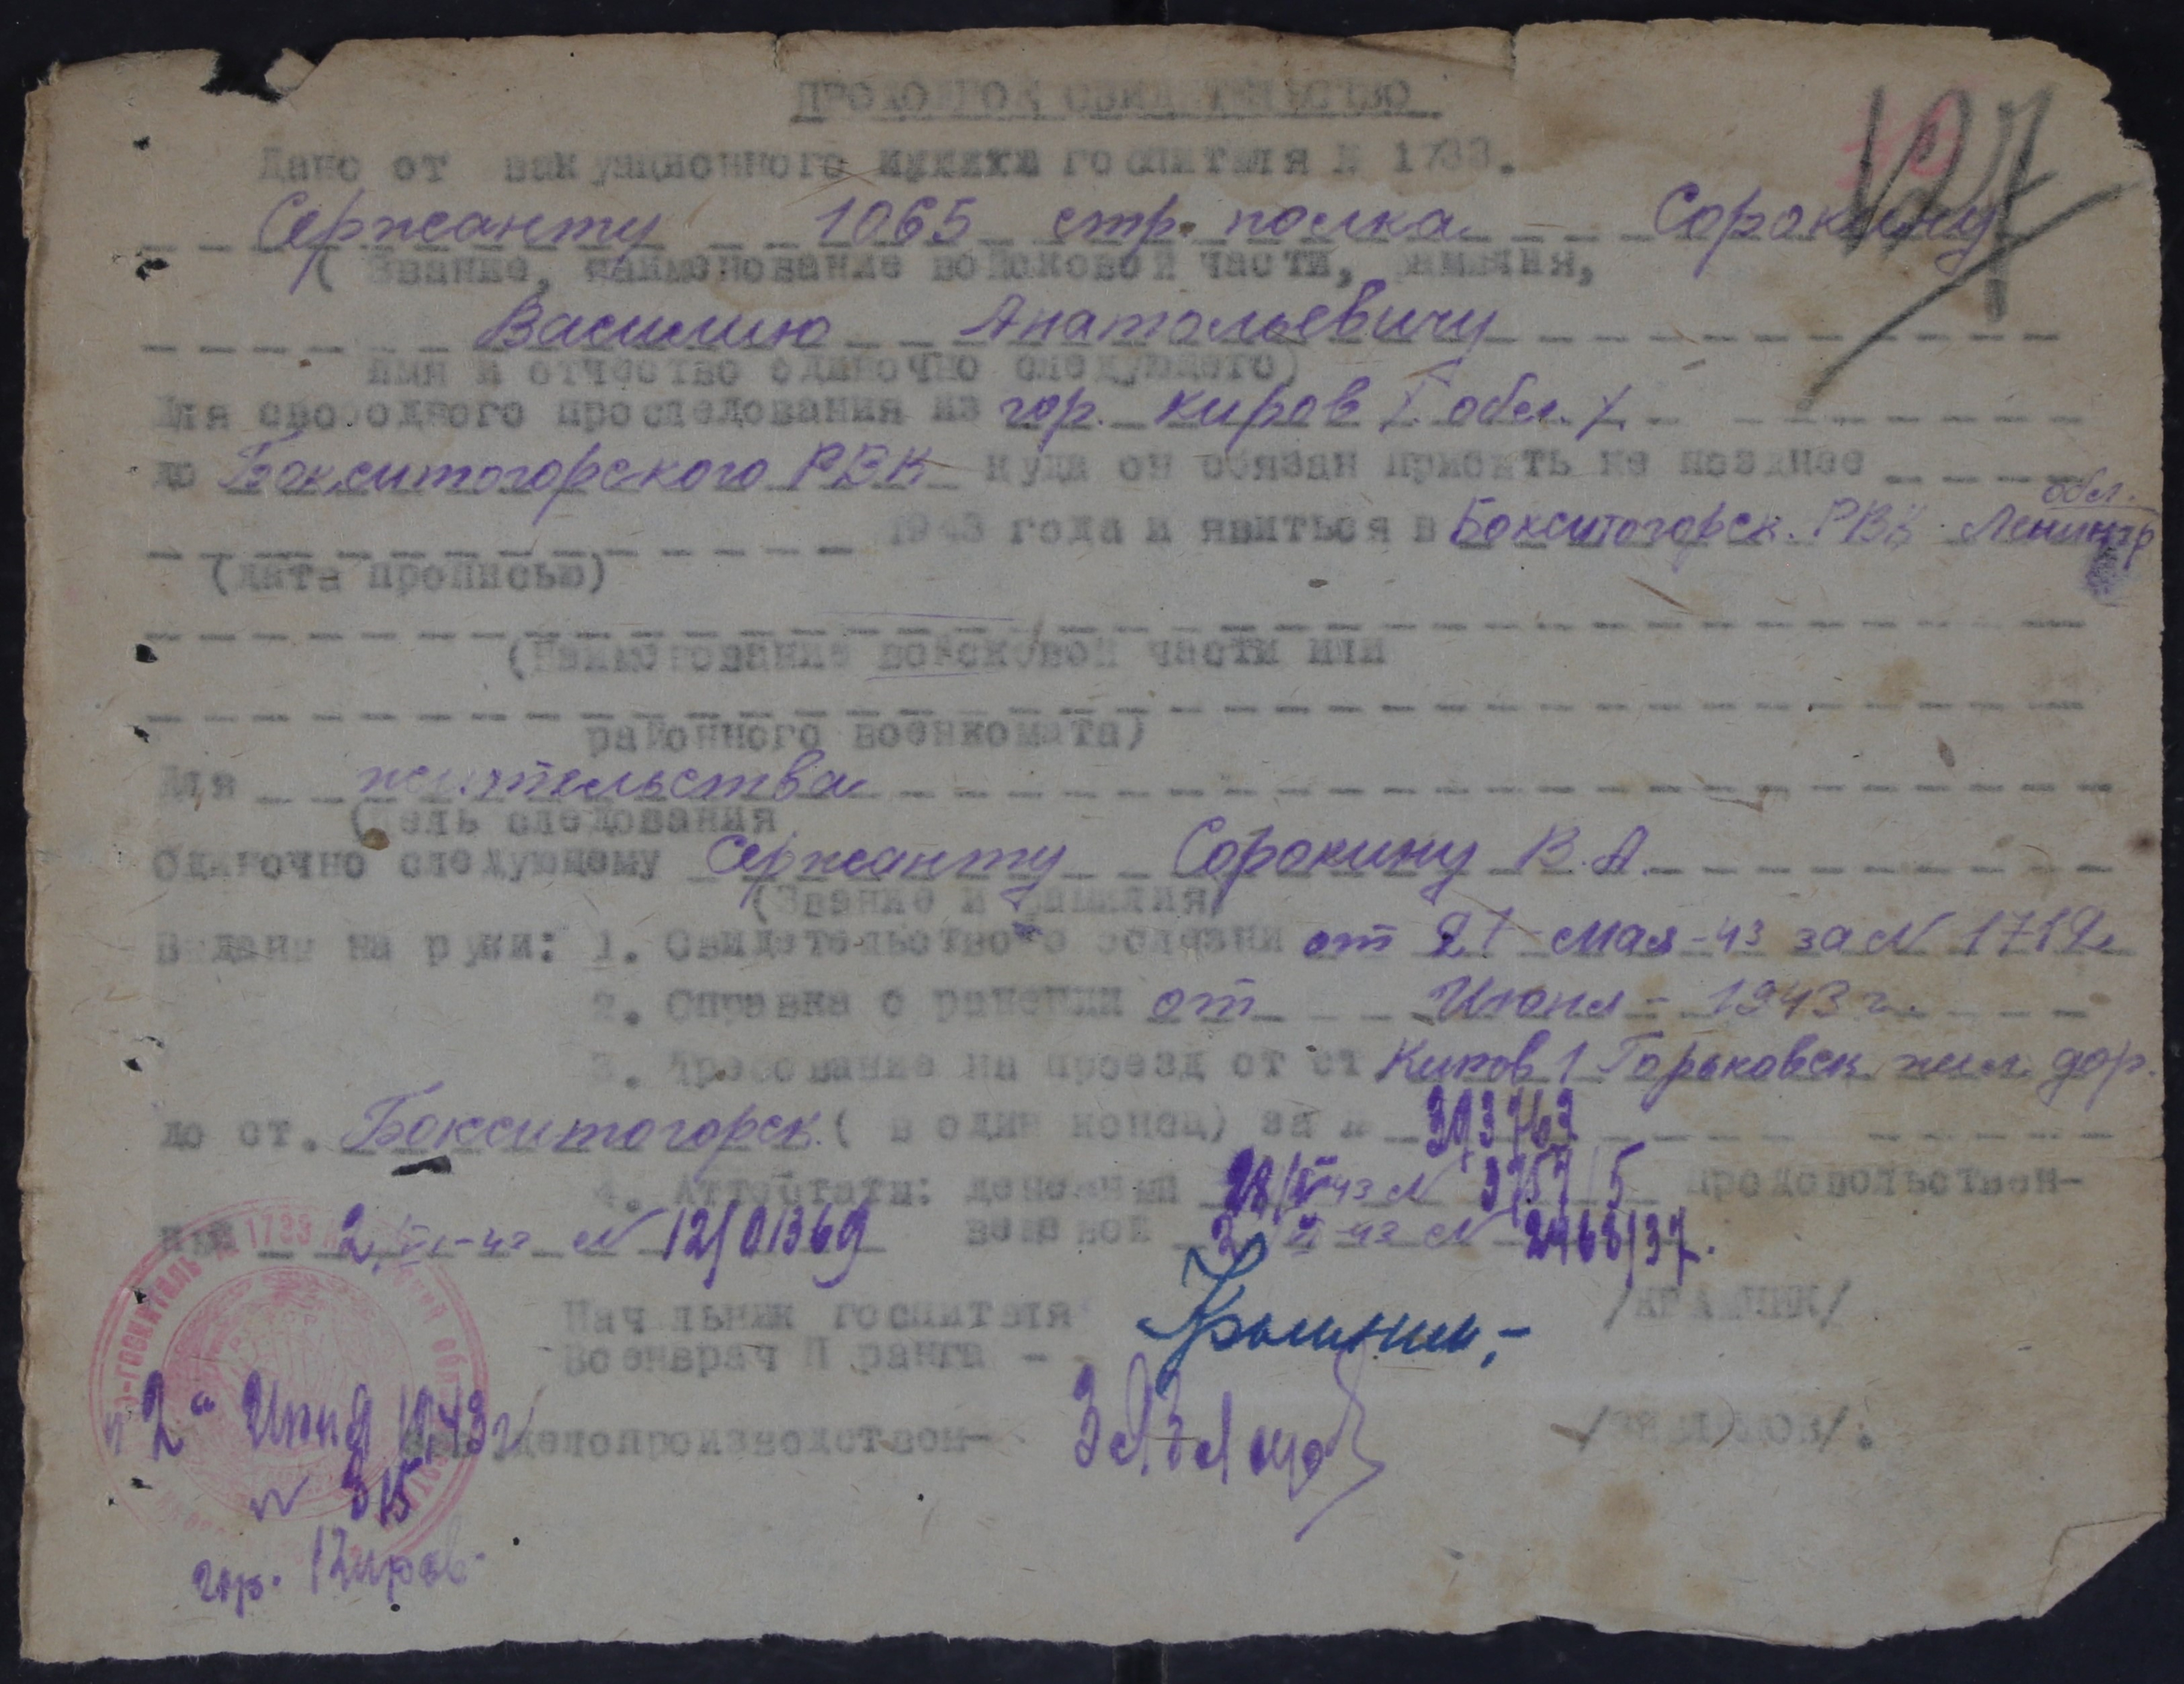 ПРОХОДНОЕ СВИДЕТЕЛЬСТВО
127
Дано от эвакуационного госпиталя № 1733.
Сержанту 1065 стр. полка Сорокину
( Звание, наименование войсковой части, фамилия,
Василию Анатольевичу
имя и отчество одиночно следующего)
Для свободного проследования из гор. Киров / обл. /
до Бокситогорского РВК куда он обязан прибыть не позднее
обл.
1943 года и явиться в Бокситогорск. РВК Ленингр
(дата прописью)
(Наименование войсковой части или
районного военкомата)
Для жительства
(цель следования
Одиночно следующему Сержанту Сорокину В. А.
(Звание и фамилия)
Выдана на руки: 1. Свидетельство о болезни от 21 мая-43 за N 1719
2. Справка о ранении от Июня - 1943 г.
3. Требование на проезд от ст Киров 1 Горьковск. жел. дор.
до ст. Бокситогорск. ( в один конец) за № 393763
4. Аттестаты: денежный 28/V-43 N 3757/5 продовольствен-
ный 2/VI-43 N 12/01369 вещевой 2/VI-43 N 2468/37.
Начальник госпиталя
Военврач П ранга -
делопроизводством-
"2" Июня 1943 г
N 315
гор. Киров.